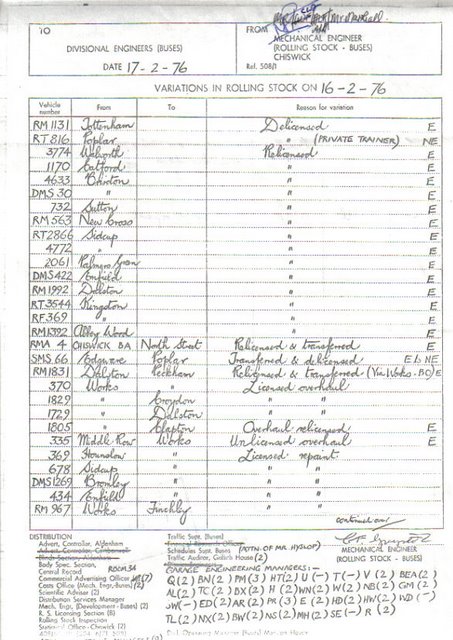 TO
FROM Mr Marshall
MECHANICAL ENGINEER
(ROLLING STOCK - BUSES)
CHISWICK
DIVISIONAL ENGINEERS (BUSES)
DATE 17-2-76
Ref. 508/1
VARIATIONS IN ROLLING STOCK ON 16-2-76
Vehicle number From To Reason for variation
RM 1131 Tottenham Delicensed E
RT 816 Poplar " (PRIVATE TRAINER) NE
3774 Walworth Relicensed E
1170 Catford " E
4633 Brixton " E
DMS 30 " " E
732 Sutton " E
RM 563 New Cross " E
RT 2866 Sidcup " E
4772 " " E
2061 Palmers Green " E
DMS 422 Enfield " E
RM 1992 Dalston " E
RT 3544 Kingston " E
RF 369 " " E
RM 1392 Abbey Wood " E
RMA 4 CHISWICK BA North Street Relicensed & transferred E
SMS 66 Edgware Poplar Transferred & delicensed E to NE
RM 1831 Dalston Peckham Relicensed & transferred (Via Works. BO) E
370 Works " Licensed overhaul
1829 " Croydon " "
1729 " Dalston " "
1805 " Clapton Overhaul relicensed E
335 Middle Row Works Unlicensed overhaul E
369 Hounslow " Licensed repaint
678 Sidcup " " "
DMS 1269 Bromley " " "
434 Enfield " " "
RM 967 Works Finchley " "
continued over
DISTRIBUTION
Advert. Controller, Aldenham
Advert. Controller, Camberwell
Body Spec. Section,
Central Record ROOM 3A
Commercial Advertising Officer
Costs Office (Mech. Engr. Buses) (2)
Scientific Adviser (2)
Distribution Services Manager
Mech. Engr. (Development - Buses) (2)
R. S. Licensing Section (B)
Rolling Stock Inspection
Stational Office - Chiswick (2)
Traffic Supt. (Buses)
Schedules Supt. Buses (ATTN. OF MR HYSLOP)
Traffic Auditor, Gotlich House (2)
MECHANICAL ENGINEER
(ROLLING STOCK - BUSES)
GARAGE ENGINEERING MANAGERS:-
Q(2) BN(2) PM(3) HT(2) U(-) T(-) V(2) BEA(2)
AL(2) TC(2) BX(2) H(2) WN(2) W(2) NB(2) GM(2)
SW(-) ED(2) AR(2) PR(3) E(2) HD(2) HW(2) WD(-)
TL(2) NX(2) BW(2) NS(2) MH(2) SE(-) R(2)